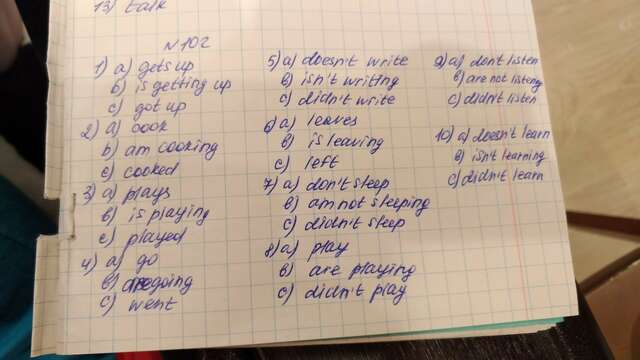 13) talk
N 102
1) a) gets up
b) is getting up
c) got up
2) a) cook
b) am cooking
c) cooked
3) a) plays
b) is playing
c) played
4) a) go
b) are going
c) went
5) a) doesn't write
b) isn't writing
c) didn't write
6) a) leaves
b) is leaving
c) left
7) a) don't sleep
b) am not sleeping
c) didn't sleep
8) a) play
b) are playing
c) didn't play
9) a) don't listen
b) are not listening
c) didn't listen
10) a) doesn't learn
b) isn't learning
c) didn't learn